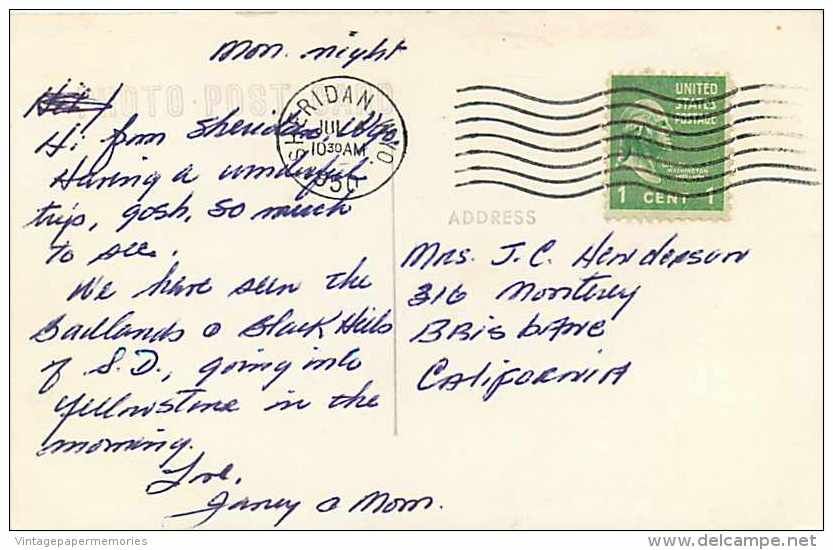 Mon. night
PHOTO POST CARD
Hi from Sheridan, Wyo.
Having a wonderful
trip, gosh, so much
to see.
We have seen the
Badlands & Black Hills
of S.D., going into
Yellowstone in the
morning.
Love,
Janey & Mom.
SHERIDAN, WYO
JUL
10 30 AM
1950
UNITED
STATES
POSTAGE
WASHINGTON
1 CENT 1
ADDRESS
Mrs. J.C. Henderson
316 Monterey
Brisbane
California
Vintagepapermemories
delcampe.net